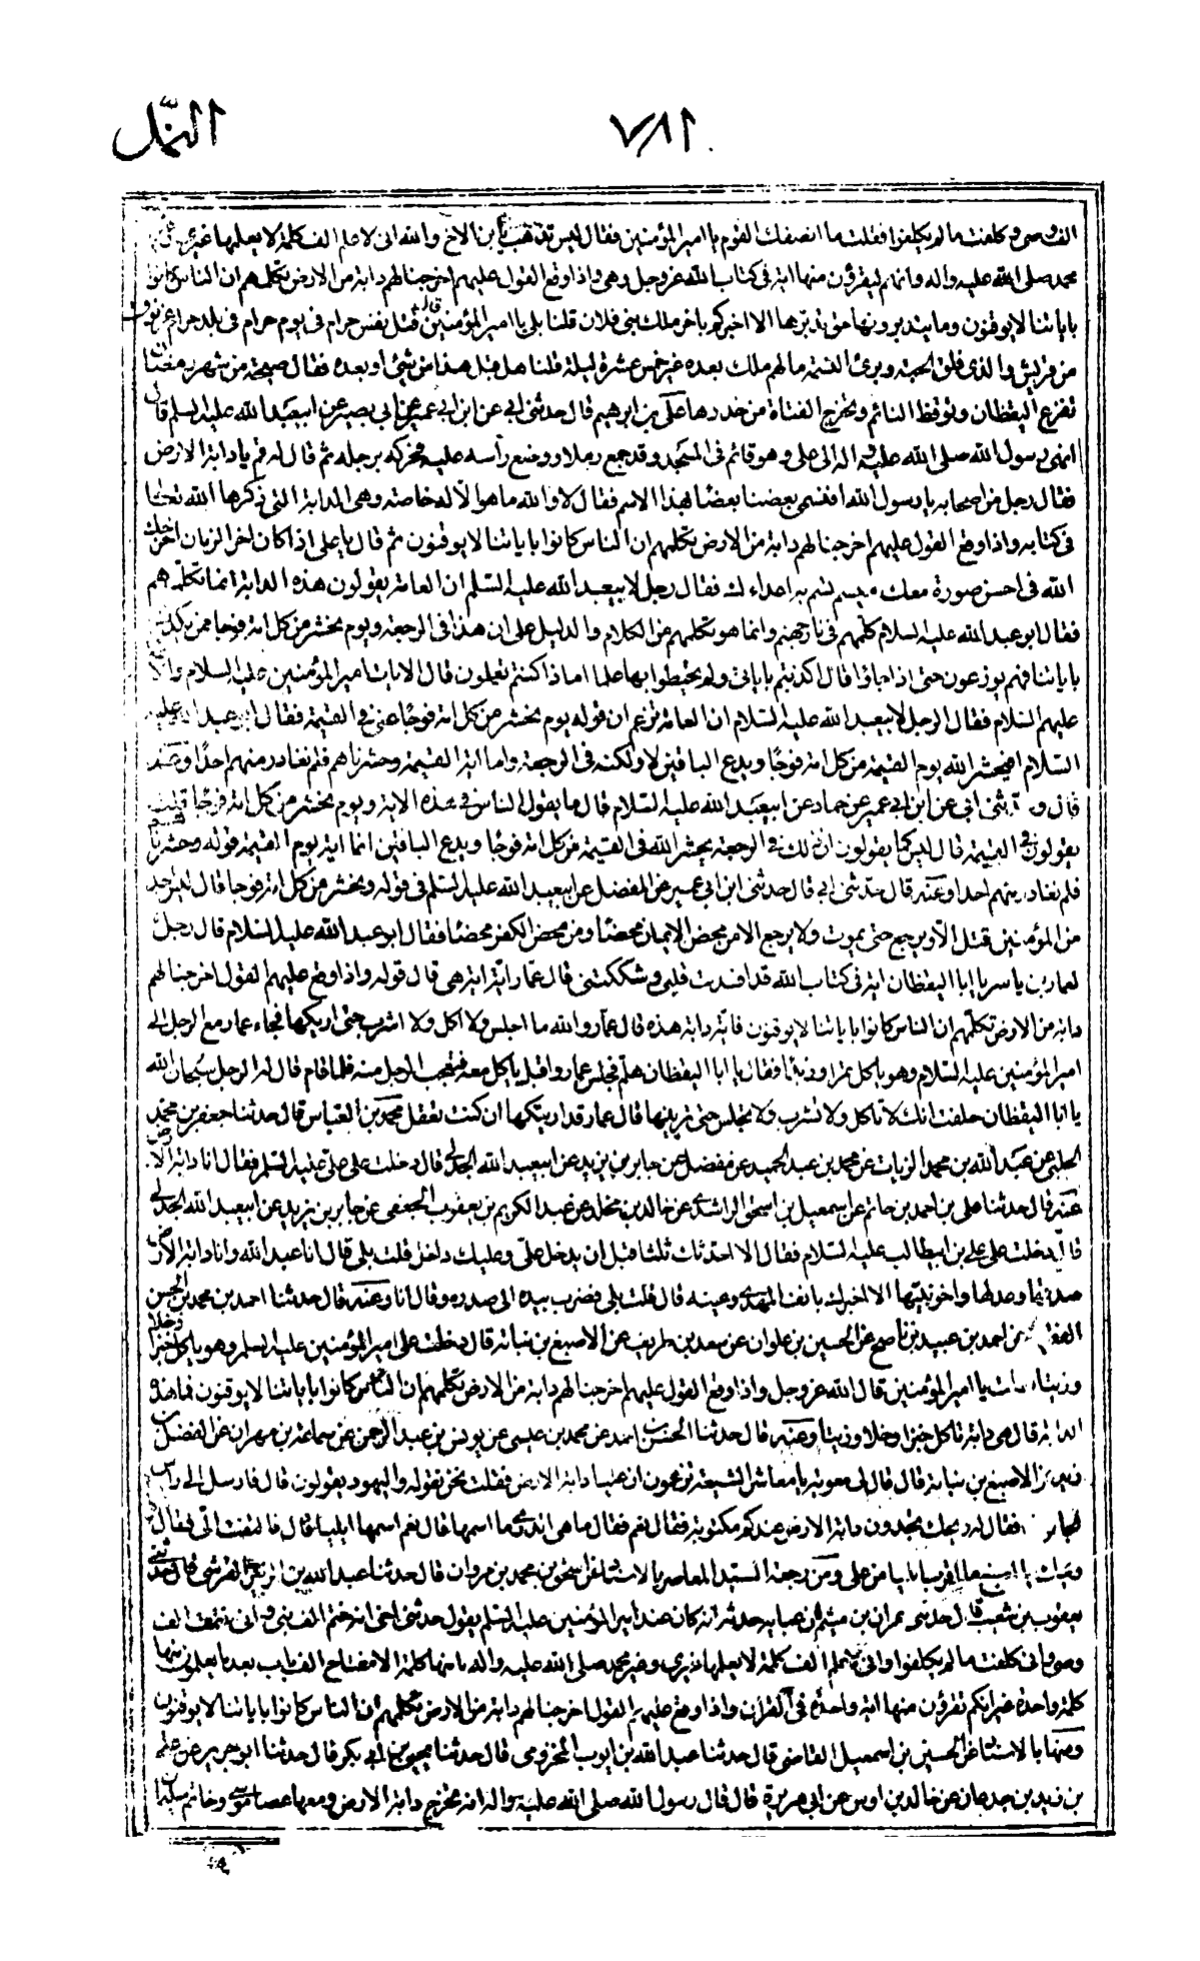 النمل
٧٨٢
الف وصي وكلفت ما لم يكلفوا فقلت ما انصفك القوم يا امير المؤمنين فقال ليس تذهب يا بن الاخ والله انى لاعلم الف كلمة لا يعلمها غيري وغير
محمد صلى الله عليه واله وانهم ليقرؤن منها اية فى كتاب الله عز وجل وهى واذا وقع القول عليهم اخرجنا لهم دابة من الارض تكلمهم ان الناس كانوا
باياتنا لا يوقنون وما يتدبرونها حق تدبرها الا اخبركم باخر ملك بنى فلان قلنا بلى يا امير المؤمنين قال قتل نفس حرام فى يوم حرام فى بلد حرام عن قوم
من قريش والذى فلق الحبة وبرئ النسمة ما لهم ملك بعده غير خمس عشرة ليلة قلنا هل قبل هذا من شئ او بعده فقال صيحة من شهر رمضان
تفزع اليقظان وتوقظ النائم وتخرج الفتاة من خدرها على بن ابرهيم قال حدثنى ابى عن ابن ابى عمير عن ابى بصير عن ابيعبد الله عليه السلم قال
انتهى رسول الله صلى الله عليه واله الى على وهو قائم فى المسجد وقد جمع رملا ووضع رأسه عليه فحركه برجله ثم قال له قم يا دابة الارض
فقال رجل من اصحابه يا رسول الله افنسمى بعضنا بعضا بهذا الاسم فقال لا والله ما هو الا له خاصة وهى الدابة التى ذكرها الله تعالى
فى كتابه واذا وقع القول عليهم اخرجنا لهم دابة من الارض تكلمهم ان الناس كانوا باياتنا لا يوقنون ثم قال يا على اذا كان اخر الزمان اخرجك
الله فى احسن صورة معك ميسم تسم به اعداءك فقال رجل لابيعبد الله عليه السلم ان العامة يقولون هذه الدابة انما تكلمهم
فقال ابو عبد الله عليه السلام كلمهم فى نار جهنم وانما هو تكلمهم من الكلام والدليل على ان هذا فى الرجعة ويوم نحشر من كل امة فوجا ممن يكذب
باياتنا فهم يوزعون حتى اذا جاؤا قال اكذبتم باياتى ولم تحيطوا بها علما اماذا كنتم تعملون قال الايات امير المؤمنين عليه السلام والائمة
عليهم السلام فقال الرجل لابيعبد الله عليه السلام ان العامة تزعم ان قوله يوم نحشر من كل امة فوجا عنى فى القيمة فقال ابو عبد الله عليه
السلام افيحشر الله يوم القيمة من كل امة فوجا ويدع الباقين لا ولكنه فى الرجعة واما اية القيمة وحشرناهم فلم نغادر منهم احدا وعنه
قال حدثنى ابى عن ابن ابى عمير عن حماد عن ابيعبد الله عليه السلام قال ما يقول الناس فى هذه الاية ويوم نحشر من كل امة فوجا قلت
يقولون انها فى القيمة قال ليس كما يقولون ان ذلك فى الرجعة يحشر الله فى القيمة من كل امة فوجا ويدع الباقين انما اية يوم القيمة قوله وحشرناهم
فلم نغادر منهم احدا وعنه قال حدثنى ابى قال حدثنى ابن ابى عمير عن المفضل عن ابيعبد الله عليه السلم فى قوله ويوم نحشر من كل امة فوجا قال ليس احد
من المؤمنين قتل الا ويرجع حتى يموت ولا يرجع الا من محض الايمان محضا ومن محض الكفر محضا فقال ابو عبد الله عليه السلام قال رجل
لعمار بن ياسر يا ابا اليقظان اية فى كتاب الله قد افسدت قلبى وشككتنى قال عمار اية اية هى قال قوله واذا وقع عليهم القول اخرجنا لهم
دابة من الارض تكلمهم ان الناس كانوا باياتنا لا يوقنون فاية دابة هذه قال عمار والله ما اجلس ولا اكل ولا اشرب حتى اريكها فجاء عمار مع الرجل الى
امير المؤمنين عليه السلام وهو ياكل تمرا وزبدا فقال يا ابا اليقظان هلم فجلس عمار واقبل ياكل معه فتعجب الرجل منه فلما قام قال له الرجل سبحان الله
يا ابا اليقظان حلفت انك لا تاكل ولا تشرب ولا تجلس حتى ترينيها قال عمار قد اريتكها ان كنت تعقل محمد بن العباس قال حدثنا جعفر بن محمد
الحلبى عن عبد الله بن محمد الزيات عن محمد بن عبد الحميد عن مفضل عن جابر بن يزيد عن ابيعبد الله الجدلى قال دخلت على على عليه السلم فقال انا دابة الارض
عنه قال حدثنا على بن احمد بن حاتم عن اسمعيل بن اسحق الراشدى عن خالد بن مخلد عن عبد الكريم بن يعقوب الجعفى عن جابر بن يزيد عن ابيعبد الله الجدلى
قال دخلت على على بن ابيطالب عليه السلام فقال الا احدثك ثلثا قبل ان يدخل على وعليك داخل قلت بلى قال انا عبد الله وانا دابة الارض
صدقها وعدلها واخو نبيها الا اخبرك بانف المهدى وعينه قال قلت بلى فضرب بيده الى صدره وقال انا وعنه قال حدثنا احمد بن محمد بن الحسن
الفقيه عن احمد بن عبيد بن ناصح عن الحسين بن علوان عن سعد بن طريف عن الاصبغ بن نباتة قال دخلت على امير المؤمنين عليه السلم وهو ياكل خبزا وخلا
وزيتا فقلت يا امير المؤمنين قال الله عز وجل واذا وقع القول عليهم اخرجنا لهم دابة من الارض تكلمهم ان الناس كانوا باياتنا لا يوقنون فما هذه
الدابة قال هى دابة تاكل خبزا وخلا وزيتا وعنه قال حدثنا الحسين بن احمد عن محمد بن عيسى عن يونس بن عبد الرحمن عن سماعة بن مهران عن الفضل بن
زبير عن الاصبغ بن نباتة قال قال لى معوية يا معاشر الشيعة تزعمون ان عليا دابة الارض فقلت نحن نقوله واليهود يقولون قال فارسل الى راس
الجالوت فقال له ويحك تجدون دابة الارض عندكم مكتوبة فقال نعم فقال ما هى اتدرى ما اسمها قال نعم اسمها ايليا قال فالتفت الى فقال
ويحك يا اصبغ ما اقرب ايليا من على ومن رجعة السيد المعاصر بالاسناد عن اسحق بن محمد بن مروان قال حدثنا عبد الله بن الزبير القرشى قال حدثنى
يعقوب بن شعيب قال حدثنى عمران بن ميثم ان عباية حدثه انه كان عند امير المؤمنين عليه السلم يقول حدثنى اخى انه ختم الف نبى وانى ختمت الف
وصى وانى كلفت ما لم يكلفوا وانى لاعلم الف كلمة لا يعلمها غيرى وغير محمد صلى الله عليه واله ما منها كلمة الا مفتاح الف باب بعد ما يعلمون منها
كلمة واحدة غير انكم تقرؤن منها اية واحدة فى القرآن واذا وقع عليهم القول اخرجنا لهم دابة من الارض تكلمهم ان الناس كانوا باياتنا لا يوقنون
ومنها بالاسناد عن الحسين بن اسمعيل القاضى قال حدثنا عبد الله بن ايوب المخزومى قال حدثنا يحيى بن ابى بكر قال حدثنا ابو حريز عن على
بن زيد بن جدعان عن خالد بن اوس عن ابى هريرة قال قال رسول الله صلى الله عليه واله انه تخرج دابة الارض ومعها عصا موسى وخاتم سليمان